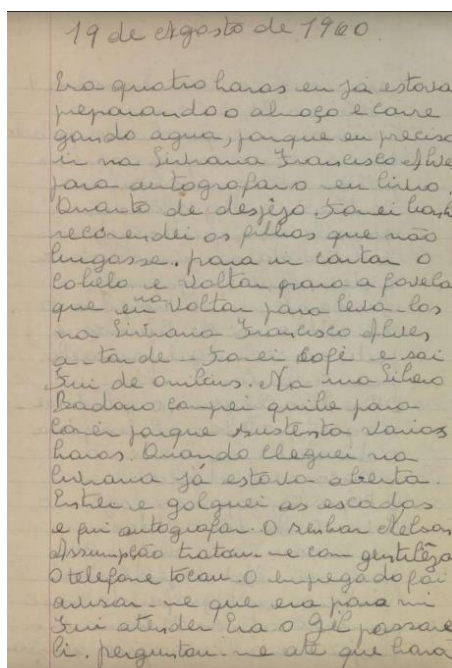 19 de Agosto de 1960.
Era quatro horas eu já estava
preparando o almoço e carre
gando agua, porque eu preciso
ir na Livraria Francisco Alves
para autografar o eu livro.
Quanto de despejo. Tomei
recomendei os filhos que não
brigasse. para ir cortar o
cabelo e voltar para a favela
que eu ia voltar para leva-los
na Livraria Francisco Alves
a-tarde - Tomei café e sai
Fui de onibus. Na rua Libero
Badaro comprei quibe para
comêr porque sustenta varias
horas. Quando cheguei na
livraria já estava aberta.
Entrei e galguei as escadas
e fui autografar. O senhor Nelson
Assumpção tratou-me com gentilêza
O telefone tocou. O empregado foi
avisar-me que era para mim
Fui atender Era o Gil passare
li. perguntou-me até que hora